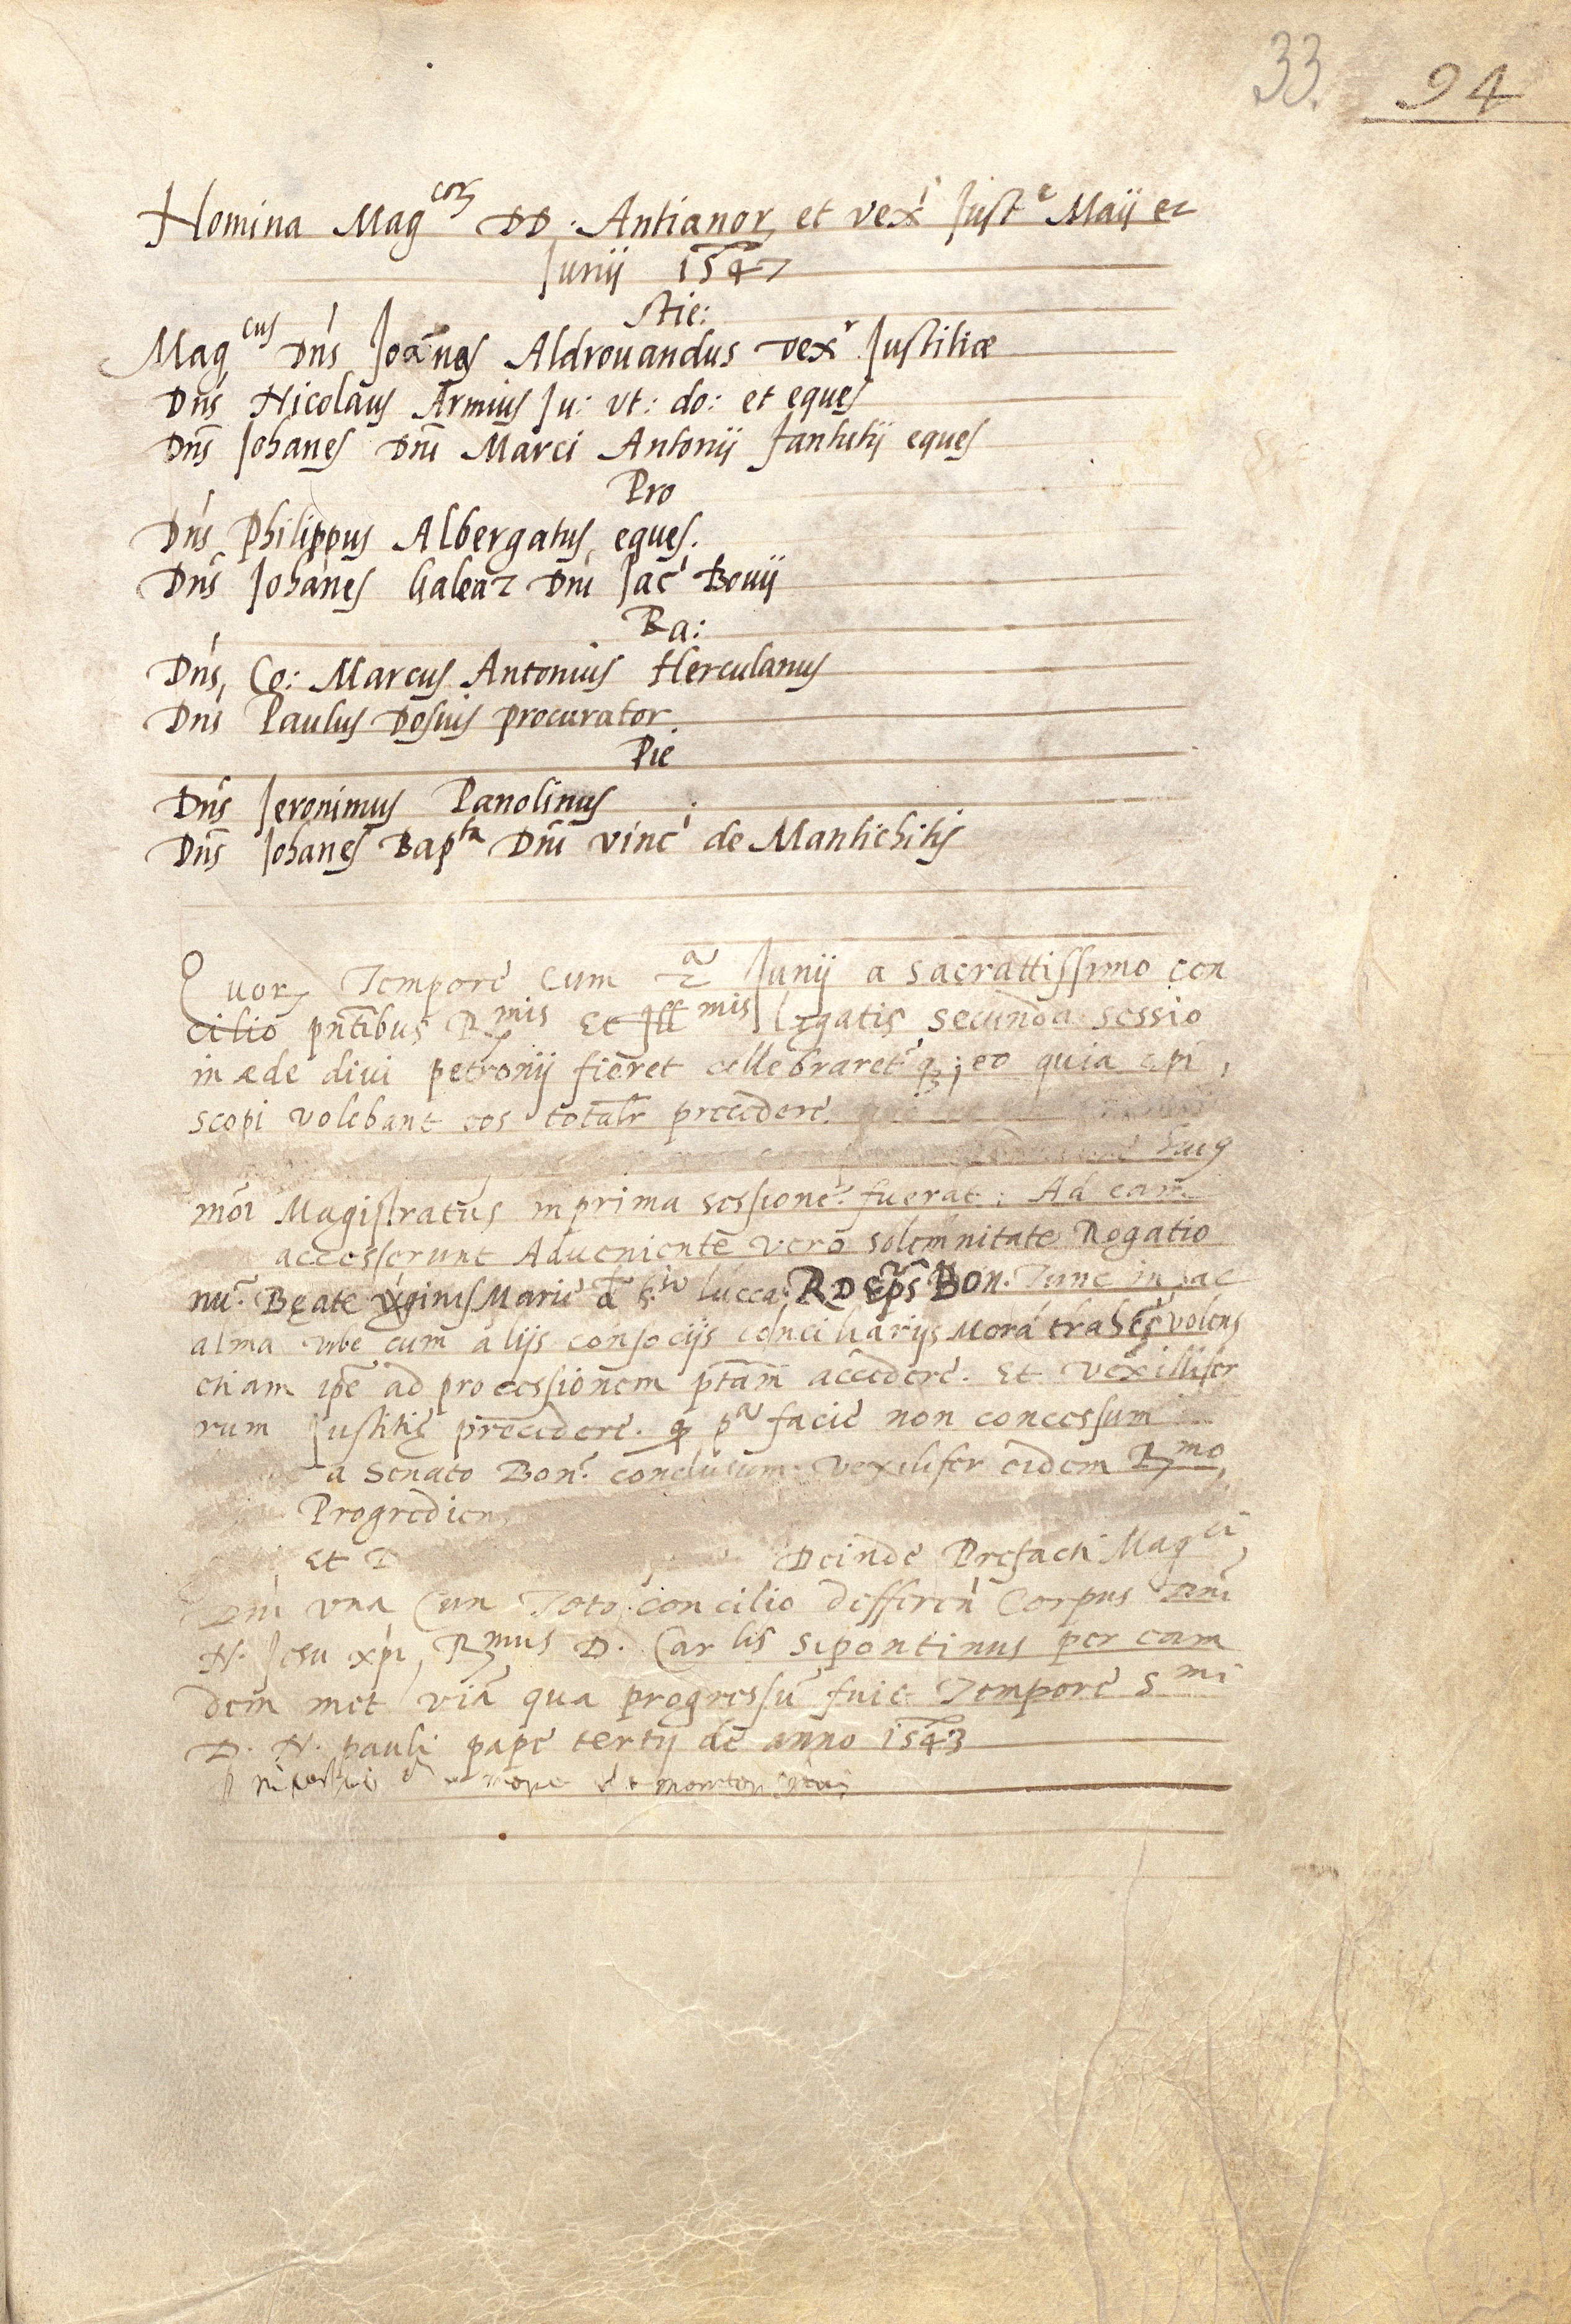 33. 94
Homina Mag^corum DD. Antianor, et vex^i Just^e Maij et
Junij 1547
Stie:
Mag^cus Dn̄s Joānes Aldrouandus vex^r Justitiæ
Dn̄s Nicolaus Armius Ju: vt: do: et eques
Dn̄s Johanes Dn̄i Marci Antonij fantutij eques
Pro
Dn̄s Philippus Albergatus eques.
Dn̄s Johānes Galeaz Dn̄i Jac^i Bouij
Ra:
Dn̄s, Co: Marcus Antonius Herculanus
Dn̄s Paulus Dosius procurator
Pie
Dn̄s Jeronimus Panolinus
Dn̄s Johanes Bap^ta Dn̄i vinc^i de Mantichitis
Quor, Tempore cum 2^a Junij a sacrattissimo con
cilio pn̄tibus R^mis et Ill^mis legatis secunda sessio
in æde diui petronij fieret cellebraret^r q₃; eo quia epi,
scopi volebant eos totalr precedere.
huiq
mōi Magistratus in prima sessione fuerat: Ad eam
accesserunt Adueniente vero solemnitate Rogatio
nū Beate virginis Marie lucca: R D Ep̄s Bon. Tunc in hac
alma vrbe cum alijs consocijs conciliarijs Morā trahēs volens
etiam ip̄e ad processionem pt̄am accedere. Et vexillifer
rum Justitię precedere. p^a facie non concessum
a Senato Bon. conclusum. vexilifer eidem R^mo
Progredien
Et D Deinde Prefacti Mag^ci
Dn̄i vna Cun Toto concilio defferen̄ Corpus Dn̄i
N. Jesu xp̄i, R^mus D. Car lis sipontinus per eam
dem met viā qua progressū fuit Tempore S^mi
D. N. pauli pape tertij de anno 1543